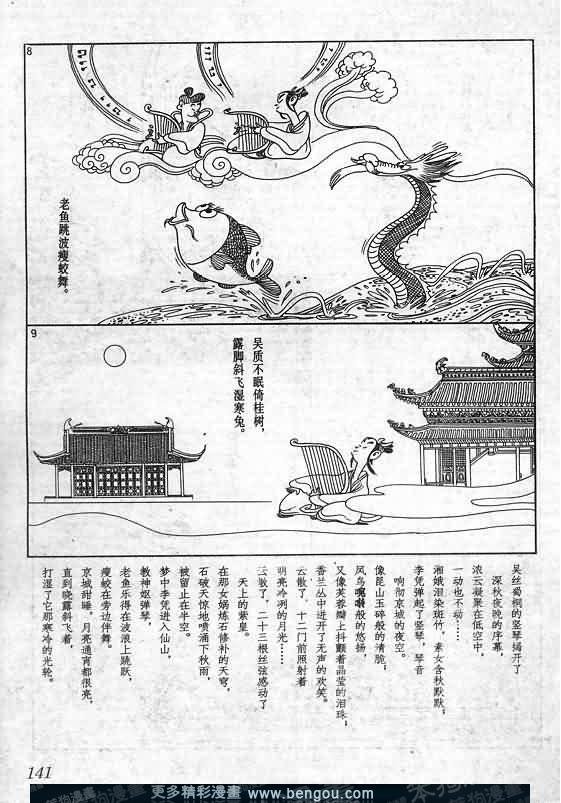 8
老鱼跳波瘦蛟舞。
9
吴质不眠倚桂树，
露脚斜飞湿寒兔。
吴丝蜀桐的竖琴揭开了
深秋夜晚的序幕，
浓云凝聚在低空中，
一动也不动……
湘娥泪染斑竹，素女含秋默默；
李凭弹起了竖琴，琴音
响彻京城的夜空。
像昆山玉碎般的清脆；
凤鸟鸣啭般的悠扬，
又像芙蓉瓣上抖颤着晶莹的泪珠；
香兰丛中迸开了无声的欢笑。
云散了，十二门前照射着
明亮冷冽的月光……
云散了，二十三根丝弦感动了
天上的紫皇。
在那女娲炼石修补的天穹，
石破天惊地喷涌下秋雨，
被留止在半空。
梦中李凭进入仙山，
教神妪弹琴，
老鱼乐得在波浪上跳跃，
瘦蛟在旁边伴舞。
京城甜睡，月亮通宵都很亮，
直到晓露斜飞着，
打湿了它那寒冷的光轮。
141
更多精彩漫畫 www.bengou.com